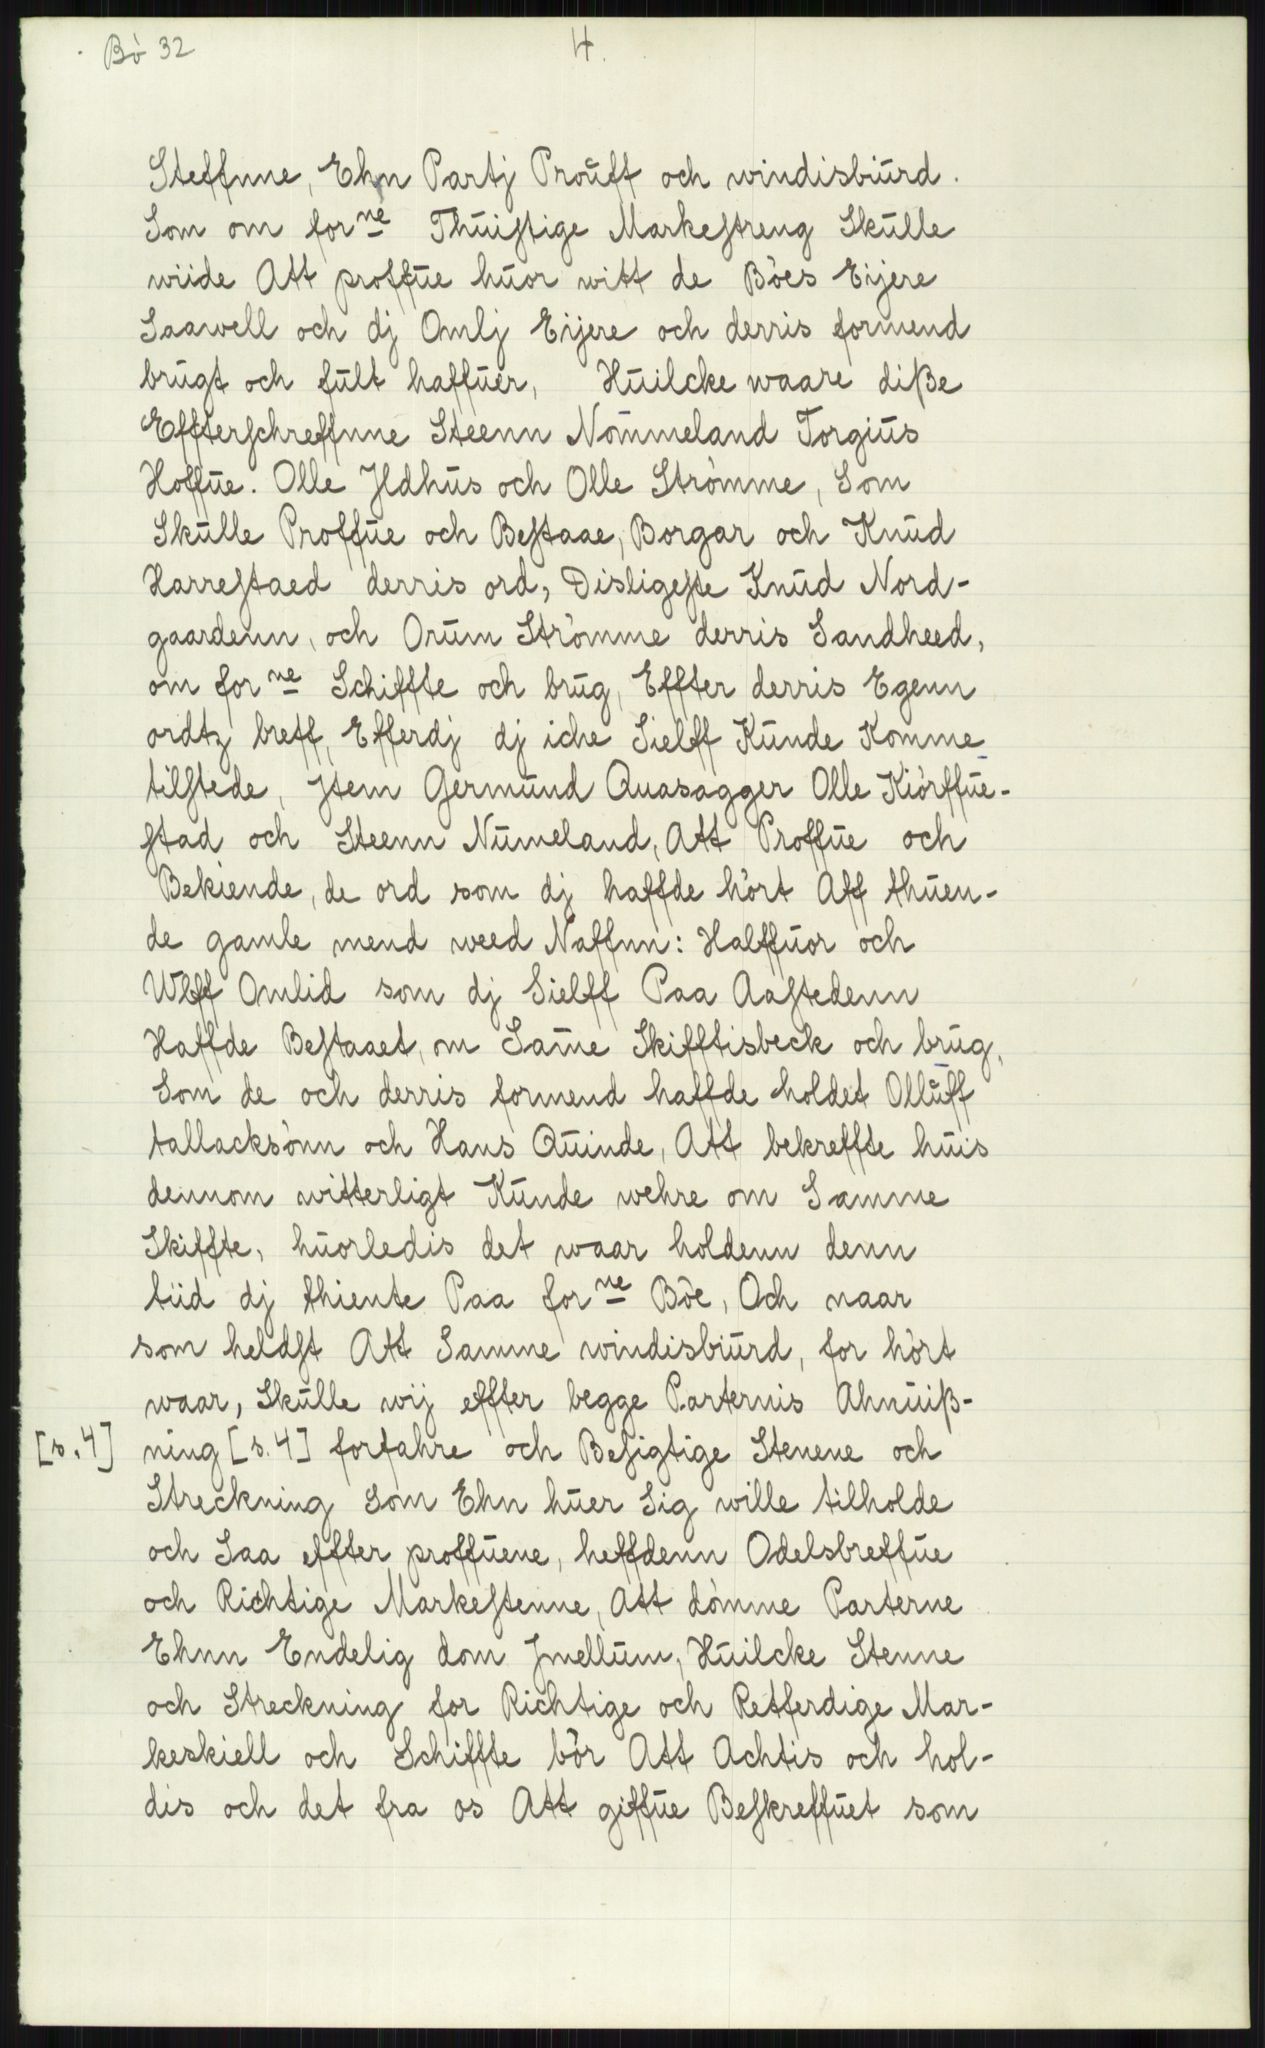 Bö 32
4.
Steffnne, Ehn Partj Prouff och windisbiurd.
Som om forne Thuistige Markestreng Skulle
wiide Att proffue huor witt de Böes Eijere
Saawell och dj Omlj Eijere och derris formend
brugt och fult haffuer, Huilcke waare diße
Effterschreffnne Steenn Nommeland Torgius
Hoffue. Olle Jldhus och Olle Strömme, Som
Skulle Proffue och Bestaae, Borgar och Knud
Harrestaed derris ord, Disligeste Knud Nord-
gaardenn, och Orum Strömme derris Sandheed,
om forne Schiffte och brug, Effter derris Egenn
ordtz breff, Efferdj dj iche Sielff Kunde Komme
tilstede, Jtem Germund Quasagger Olle Kiörffue-
stad och Steenn Numeland, Att Proffue och
Bekiende, de ord som dj haffde hört Aff thuen-
de gamle mend weed Naffnn: Halffuor och
Wlff Omlid som dj Sielff Paa Aastedenn
Haffde Bestaaet, om Same Skifftisbeck och brug,
Som de och derris formend haffde holdet Olluff
tallacksönn och Hans Quinde, Att bekreffte huis
dennom witterligt Kunde wehre om Samme
Skiffte, huorledis det waar holdenn denn
tiid dj thiente Paa forne Böe, Och naar
som heldst Att Samme windisbiurd, for hört
waar, Skulle wij effter begge Parternis Ahnuiß-
[s. 4] ning [s. 4] forfahre och Besigtige Stenene och
Streckning Som Ehn huer Sig wille tilholde
och Saa effter proffuene, heffdenn Odelsbreffue
och Richtige Markestenne, Att dömme Parterne
Ehnn Endelig dom Jmellum, Huilcke Stenne
och Streckning for Richtige och Retferdige Mar-
keskiell och Schiffte bör Att Achtis och hol-
dis och det fra os Att giffue Beskreffuet som